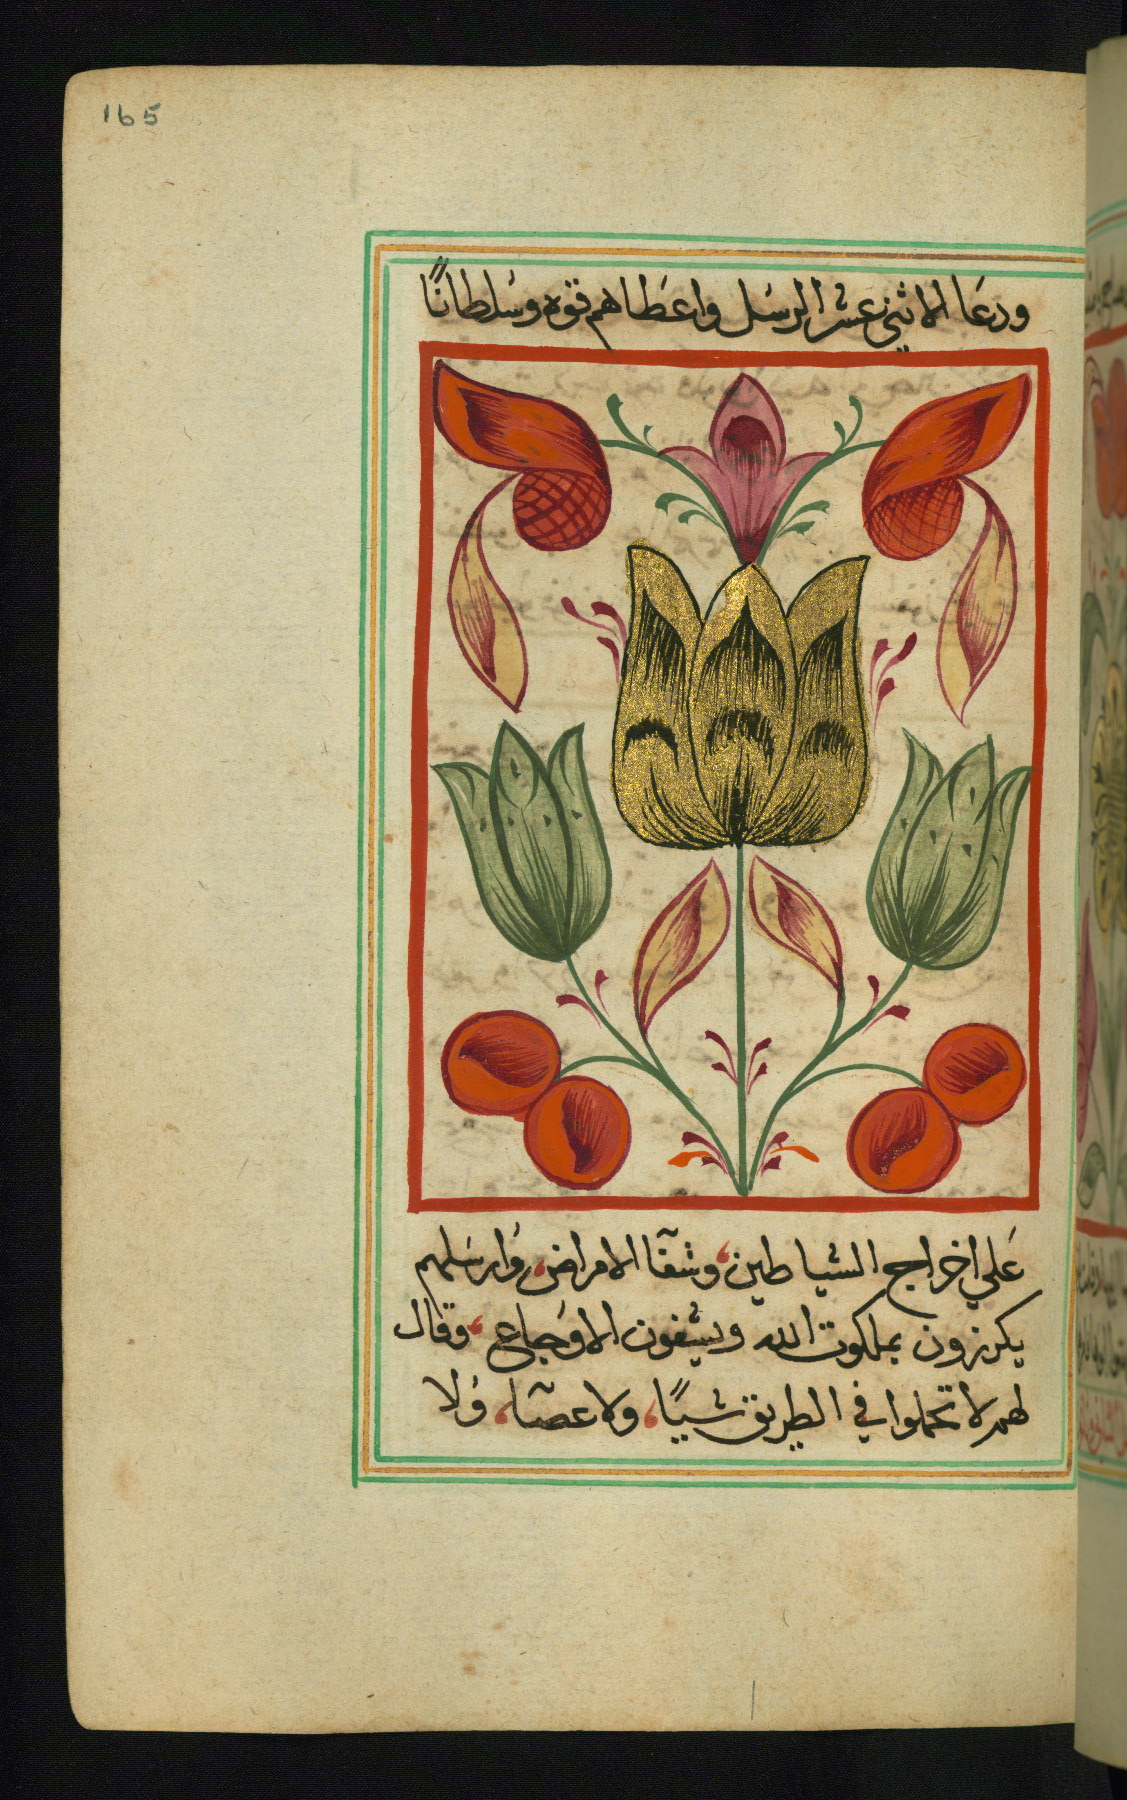 165
ودعَا الاثني عشر الرسَل واعطَاهم قوه وسُلطانًا
عَلي اخراج الشياطين، وشفآ الامراض، وُارسَلهم
يكرزون بملكوت الله ويشفون الاوُجاع، وقال
لهم لا تحملوا في الطريق شيًا، ولا عصآ، وُلا